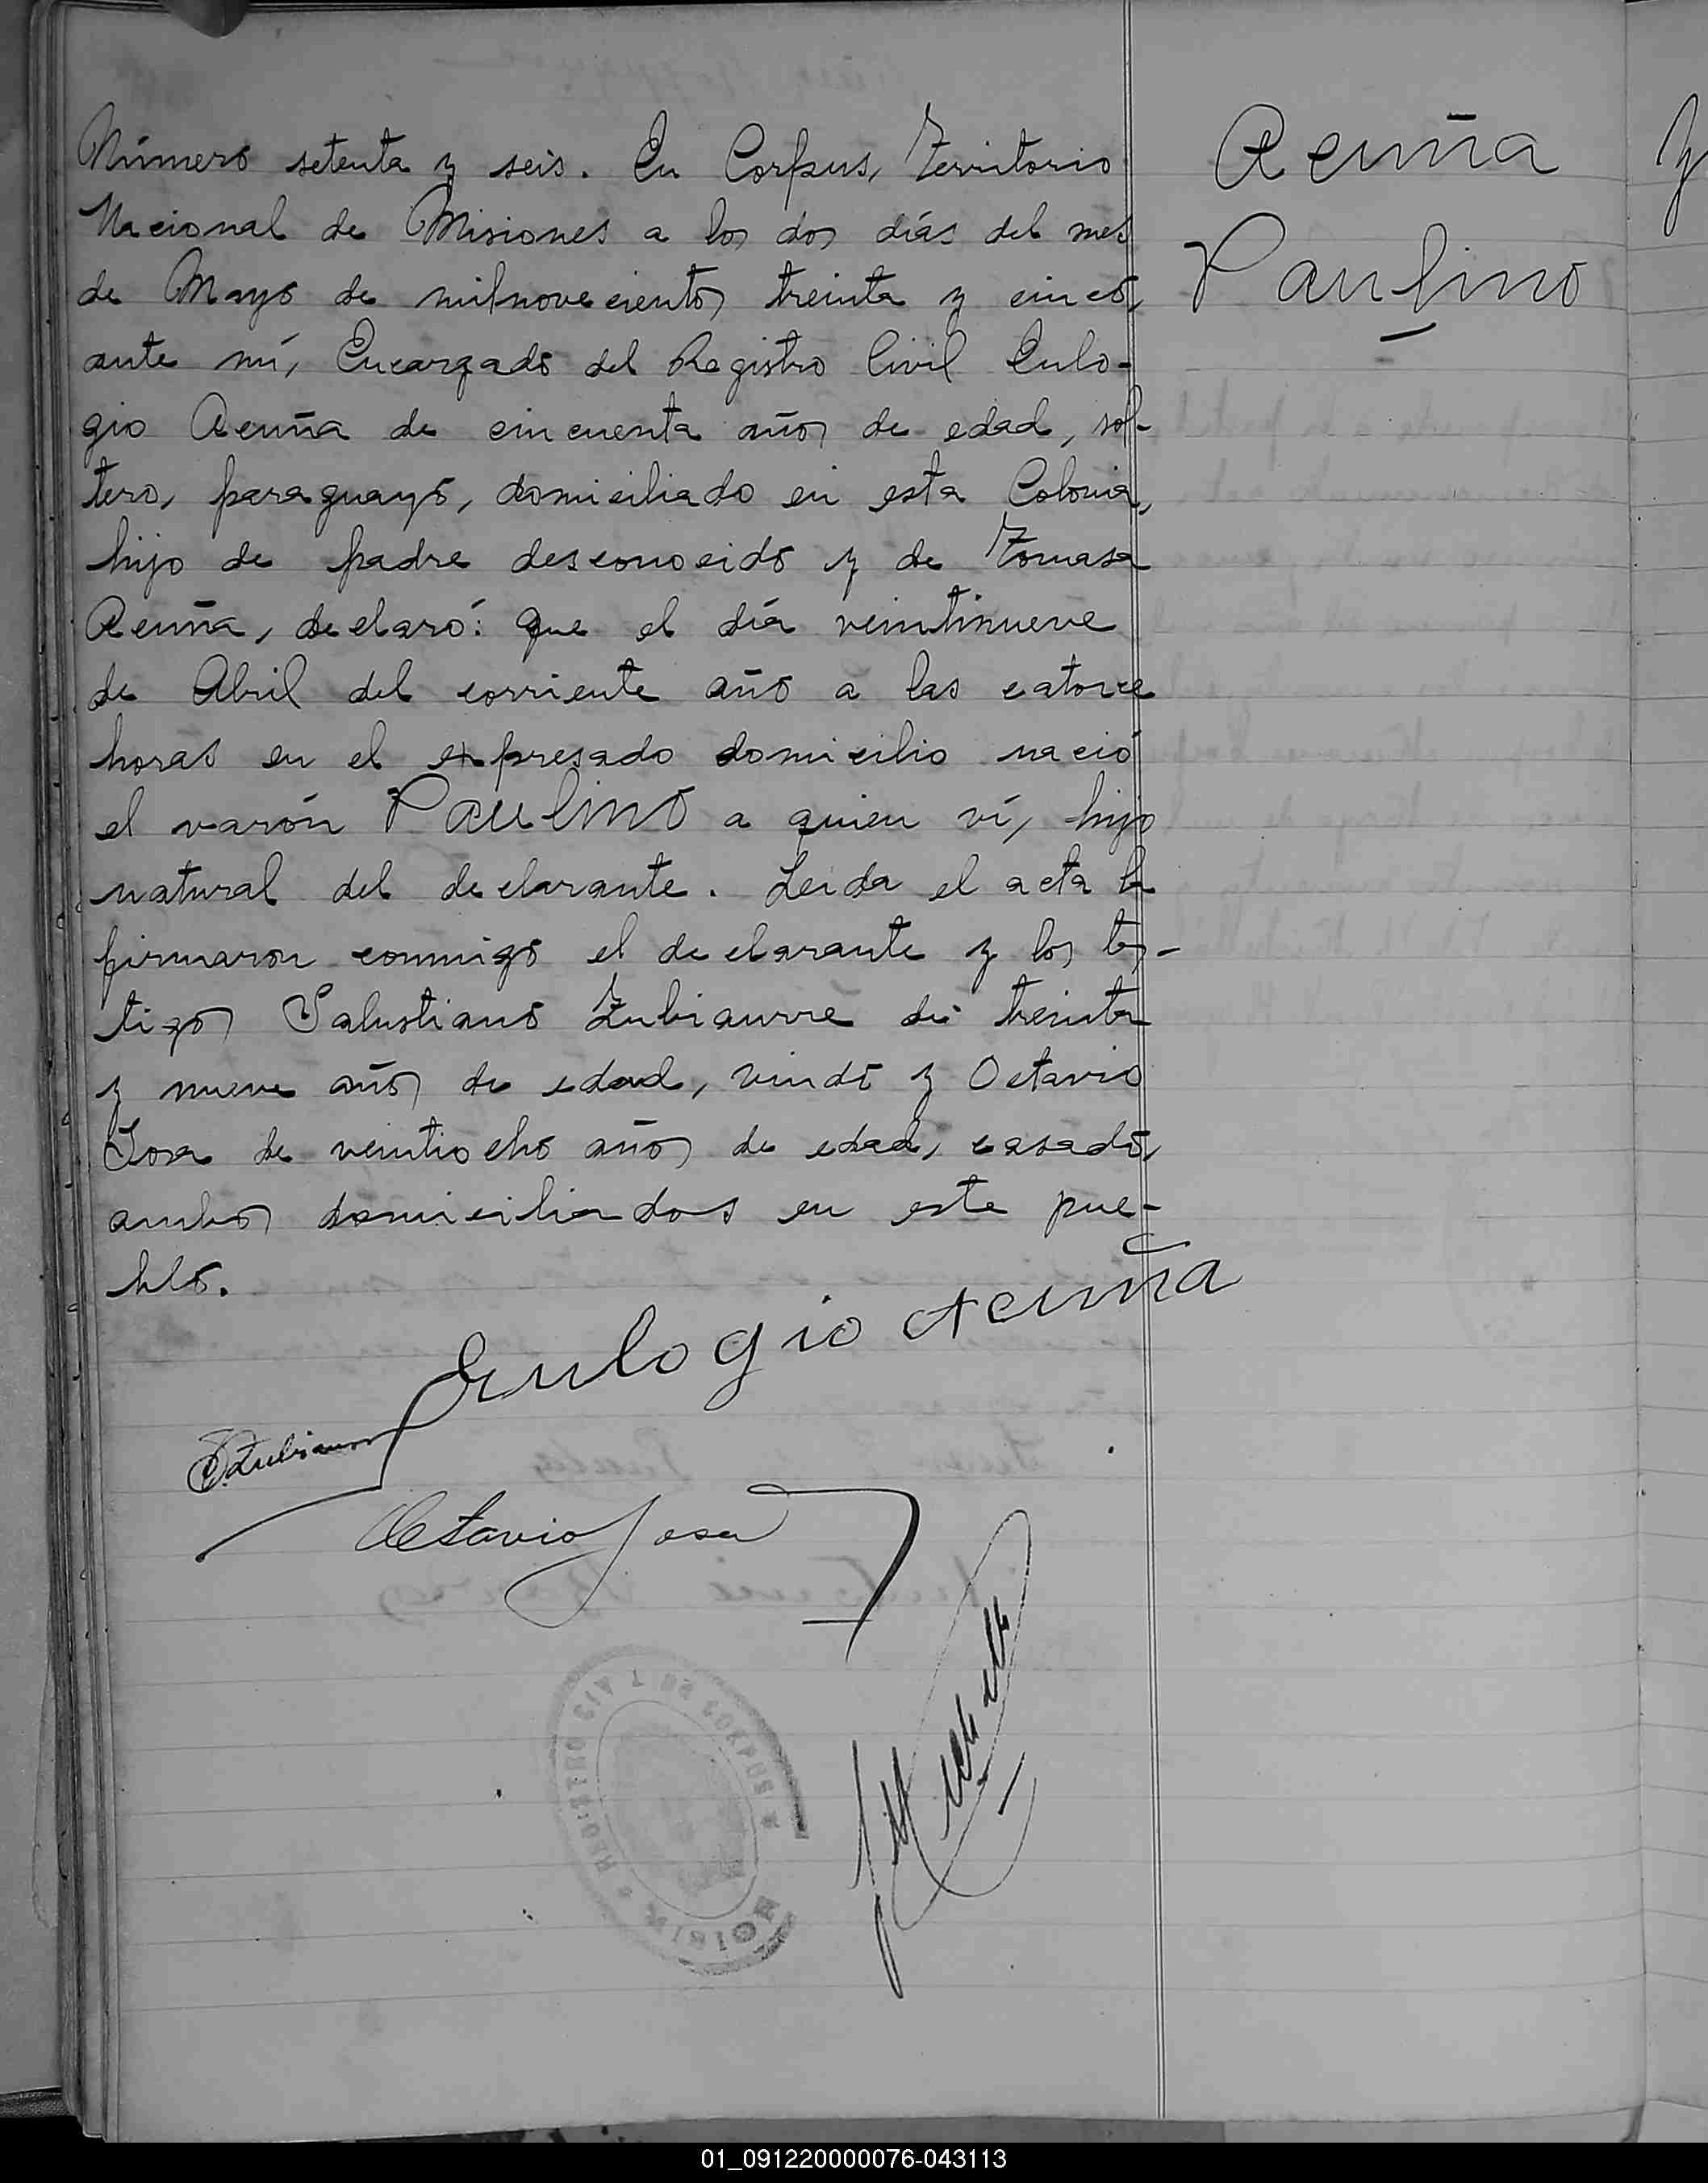 Número setenta y seis. En Corpus, Territorio
Nacional de Misiones a los dos días del mes
de Mayo de milnovecientos treinta y cinco,
ante mí, Encargado del Registro Civil Eulo-
gio Acuña de cincuenta años de edad, sol-
tero, paraguayo, domiciliado en esta Colonia,
hijo de padre desconocido y de Tomasa
Acuña, declaró: que el día veintinueve
de Abril del corriente año a las catorce
horas en el expresado domicilio nació
el varón Paulino a quien ví, hijo
natural del declarante. Leida el acta la
firmaron conmigo el declarante y los tes-
tigos Salustiano Zubiaurre de treinta
y nueve años de edad, viudo y Octavio
Sosa de veintiocho años de edad, casado,
ambos domiciliados en este pue-
blo.
Acuña
Paulino
Eulogio Acuña
S. Zubiaurre
Octavio Sosa
REGISTRO CIVIL DE CORPUS
01_091220000076-043113